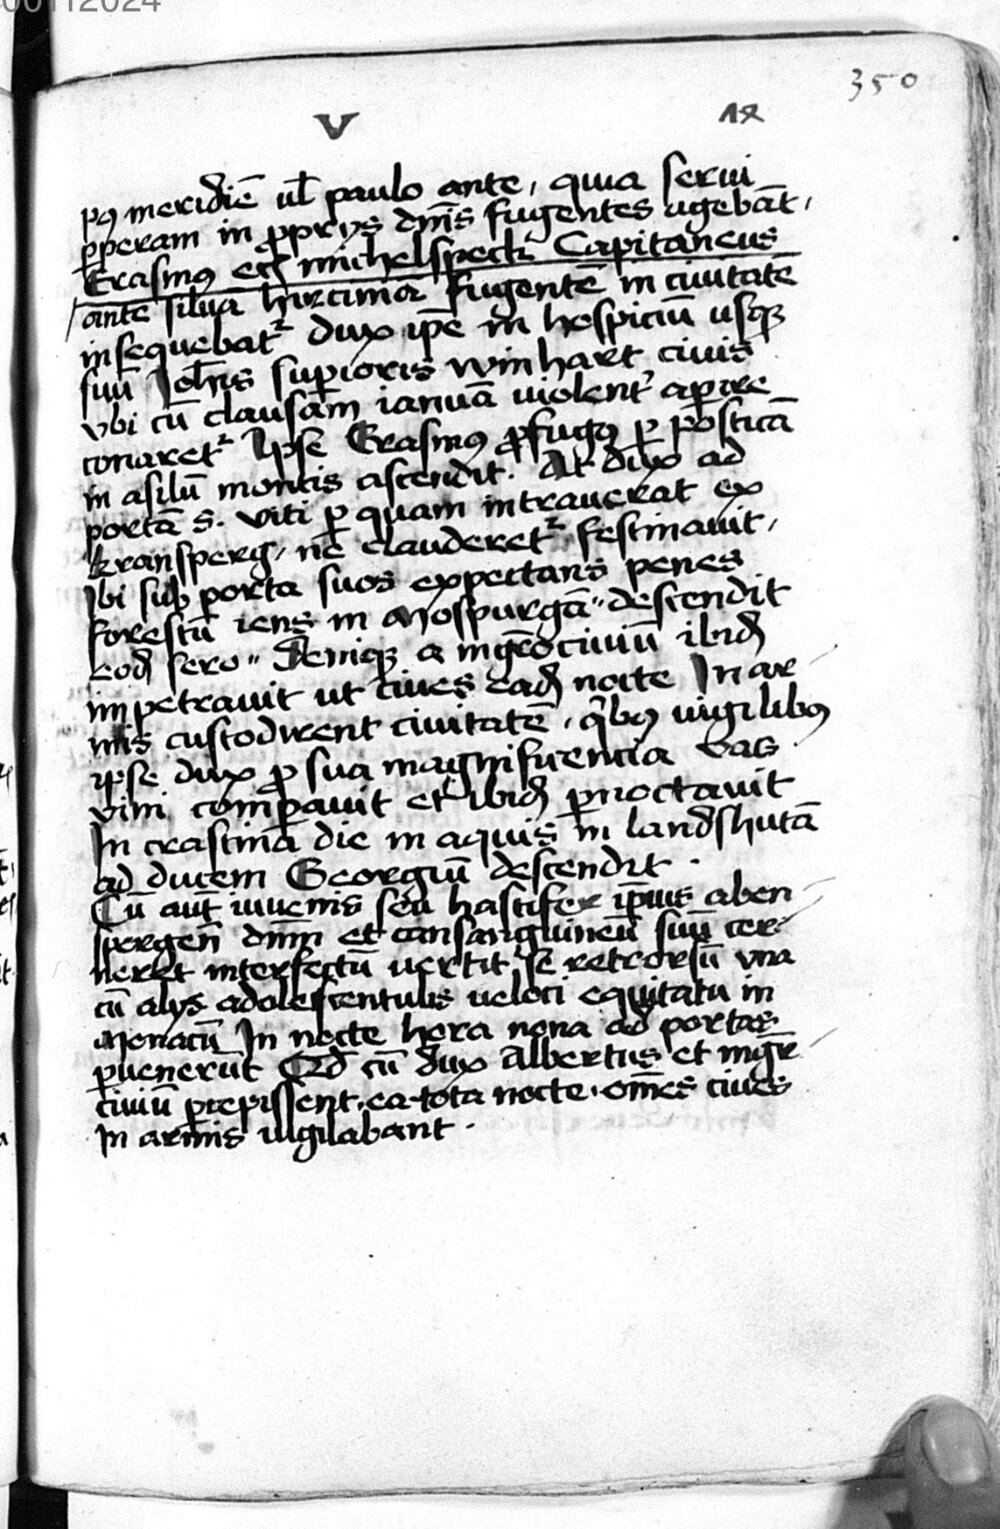 00112024
350
V
p9 meridiē ul̄ paulo ante, quia serui
pperam in pprijs dn̄is fugentes agebāt,
Erasmus michelspeck Capitaneus
ante silua hircinia fugentē in ciuitatē
insequebatr dux ip̄e in hospiciū usq;
suū Joh̄is superioris winhart ciuis
vbi cū clausam ianuā uiolentr aperire
conaretr Ipse Erasmus pfugus p posticā
in asilū montis ascendit. At dux ad
portā S. viti p quam intrauerat ex
kransperg, ne clauderetr festinauit,
Ibi sub porta suos expectans penes
forestū iens in Mospurgā descendit
eod sero" Deniq; a mgr̄o ciuiū ibid
impetrauit ut ciues ead nocte In ar
mis custodirent ciuitatē, qibus uigilibus
ipse dux p sua magnificencia vas
vini comparauit et ibid pnoctauit
In crastina die in aquis in landshutā
ad ducem Georgiū descendit.
Cū aut iuuenis seu hastifer ip̄ius aben
spergen̄ dn̄m et cansanguineū suū cer
neret interfectū uertit se retrorsū vna
cū alijs adolescentulis ueloci equitatu in
Monacū In nocte hora nona ad portas
puenerūt Qd cū dux Albertus et mgr̄
ciuiū pcepissent, ea tota nocte, om̄es ciues
In armis uigilabant.